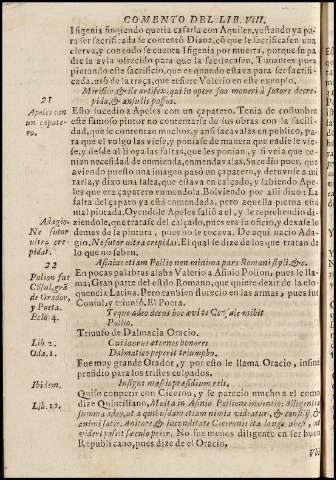 COMENTO DEL LIB. VIII.
Ifigenia fingiendo queria casarla con Aquiles, y estando ya pa-
ra ser sacrificada se contentò Diana, cō que se sacrificasen una
cierva, y con todo se cuenta Ifigenia por muerta, porque su pa-
dre la avia ofrecido para que la sacrificasen. Timantes pues
pintando este sacrificio, que es quando estava para ser sacrifi-
cada, usò de la traça, que refiere Valerio en este exemplo.
21
Mirifice, & ille artifex, qui in opere suo moneri à sutore decre-
pida, & ansulis passus.
Apeles con
un capate-
ro.
Esto sucediò a Apeles con un çapatero. Tenia de costumbre
este famoso pintor no contentarse de sus obras con la facili-
dad, que se contentan muchos, y ansi sacavalas en publico, pa-
ra que el vulgo las viese, y poniase de manera que nadie le vie-
se, y desde alli oya las faltas, que les ponian, y si via que te-
nian necesidad de enmienda, enmendavalas. Sucediò pues, que
aviendo puesto una imagen pasò un çapatero, y detuvose a mi-
rarla, y dixo una falta, que estava en calçado, y sabiendo Ape-
les que era çapatero enmendola. Bolviendo por alli dixo: La
falta del çapato ya està enmendada, pero aquella pierna està
mal pintada. Oyendole Apeles saliò a el, y le reprehendiò di-
Adagio.
Ne sutor
ultra cre-
pidat.
ziendole, que tratase del calçado, pues era su oficio, y dexase lo
demas de la pintura, pues no le tocava. De aqui naciò Ada-
gio, Ne sutor ultra crepidas. El qual se dize de los que tratan de
lo que no saben.
22
Asinius etiam Pollio non minima pars Romani styli, &c.
Polion fue
Cōsul, grā
de Orador,
y Poeta.
Eclo. 4.
En pocas palabras alaba Valerio a Asinio Polion, pues le lla-
ma, Gran parte del estilo Romano, que quiere dezir de la elo-
quencia Latina. Pero tambien floreciò en las armas, y pues fue
Consul, y triunfò. El Poeta.
Teque adeo decus hoc ævi te Consule inibit
Pollio.
Triunfo de Dalmacia Oracio.
Lib. 2.
Oda. 1.
Cui laurus æternos honores
Dalmatico peperit triumpho.
Fue muy grande Orador, y por esto le llama Oracio, insine
presidio para los tristes culpados.
Ibidem.
Insigne mæstis præsidium reis.
Quiso competir con Ciceron, y se pareciò mucho a el como
Lib. 12.
dize Quintiliano, Multa in Asinio Pollione inventio: diligentia
summa adeo, ut a quibusdam etiam nimia videatur, & consilij, &
animi satis. Anitore, & iucunditate Ciceronis ita longe abest, ut
videri possit sæculo prior. No fue menos diligente en ser buen
Republicano, pues dize de el Oracio.